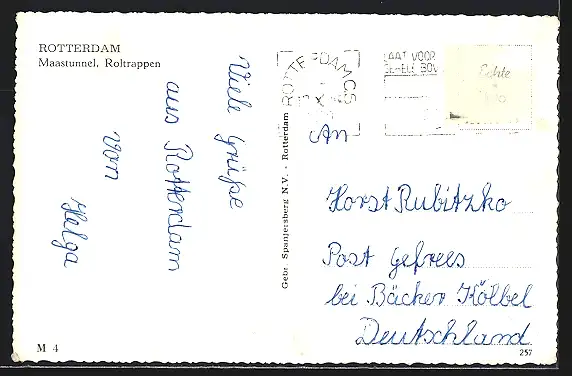 ROTTERDAM
Maastunnel, Roltrappen
Viele Grüße
aus Rotterdam
von
Helga
M 4
Gebr. Spanjersberg N.V. - Rotterdam
ROTTERDAM CS
LAAT VOOR
An
Horst Rubitzko
Post Gefrees
bei Bäcker Kölbel
Deutschland
257